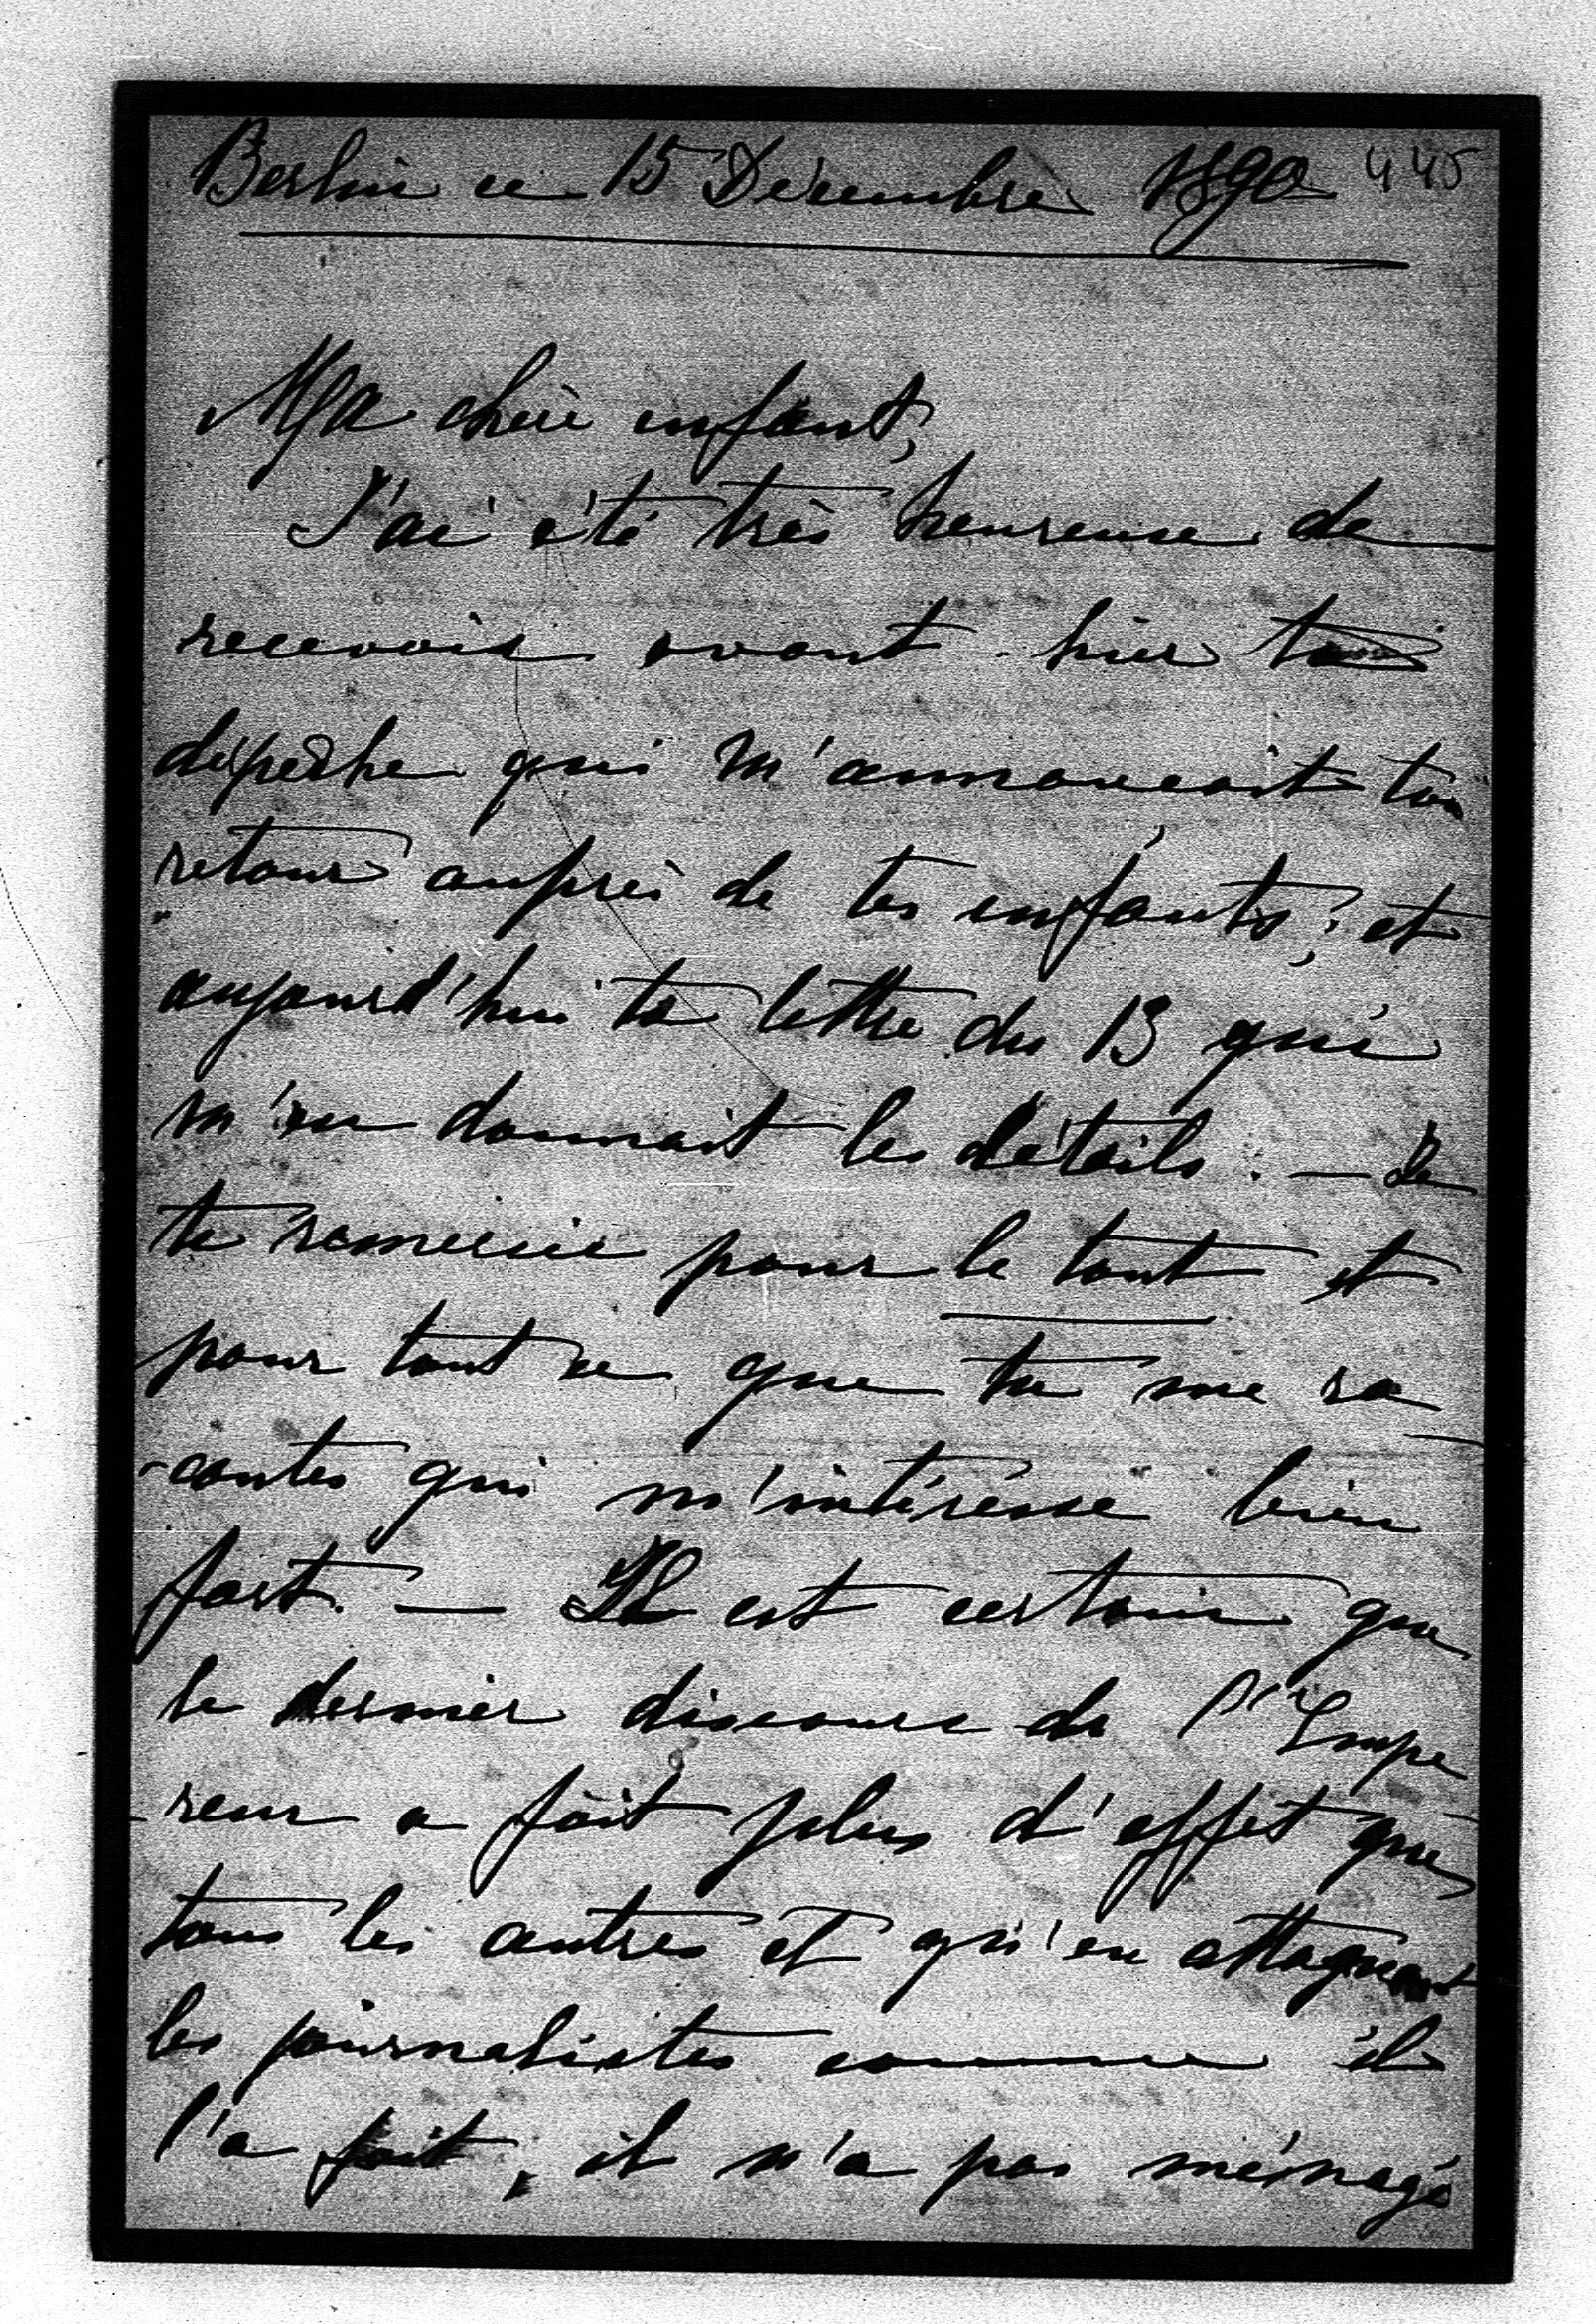 Berlin ce 15 Décembre 1890 445
Ma chère enfant,
J'ai été très heureuse de
recevoir avant-hier ta
dépêche qui m'annoncait ton
retour auprès de tes enfants; et
aujourd'hui ta lettre du 13 qui
m'en donnait les détails. — Je
te remercie pour le tout et
pour tout ce que tu me ra
-contes qui m'intéresse bien
fort. — Il est certain que
le dernier discours de l'Empe
-reur a fait plus d'effet que
tous les autres et qu'en attaquant
les journalistes comme il
l'a fait, il n'a pas ménagé